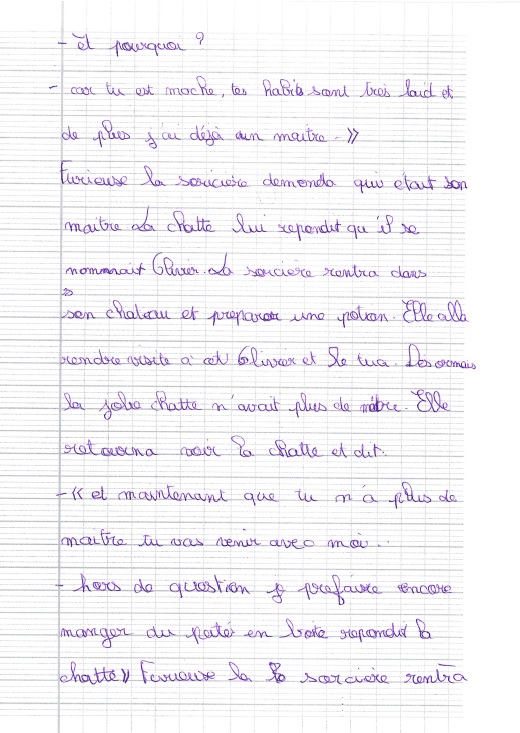 - Et pourquoi ?
- car tu est moche, tes habits sont très laid et
de plus j'ai déjà un maitre - »
Furieuse la sorciere demenda qui etait son
maitre La chatte lui repondit qu'il se
nommait Olivier. La sorciere rentra dans
son chateau et preparar une potion. Elle alla
rendre visite à cet Olivier et le tua. Des ormais
la jolie chatte n'avait plus de maitre. Elle
retourna voir la chatte et dit.
- « et maintenant que tu n'a plus de
maitre tu vas venir avec moi..
- hors de question je prefaire encore
manger du paté en boite repondit la
chatte » Furieuse la sorciere rentra